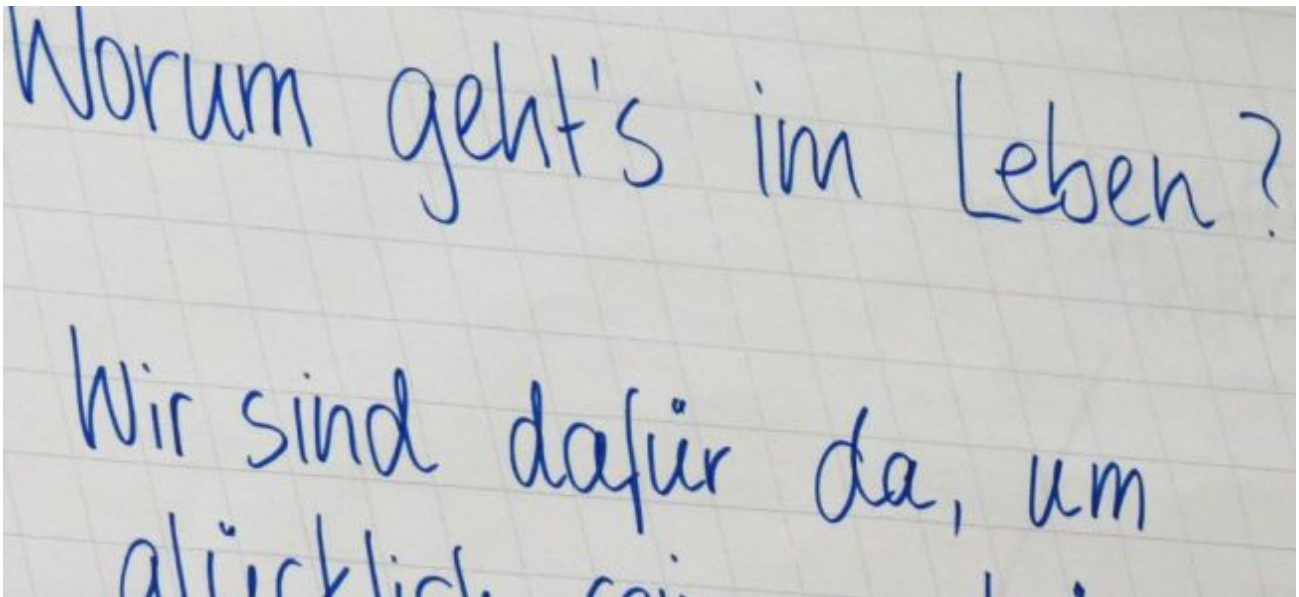 Worum geht's im Leben?
Wir sind dafür da, um
glücklich